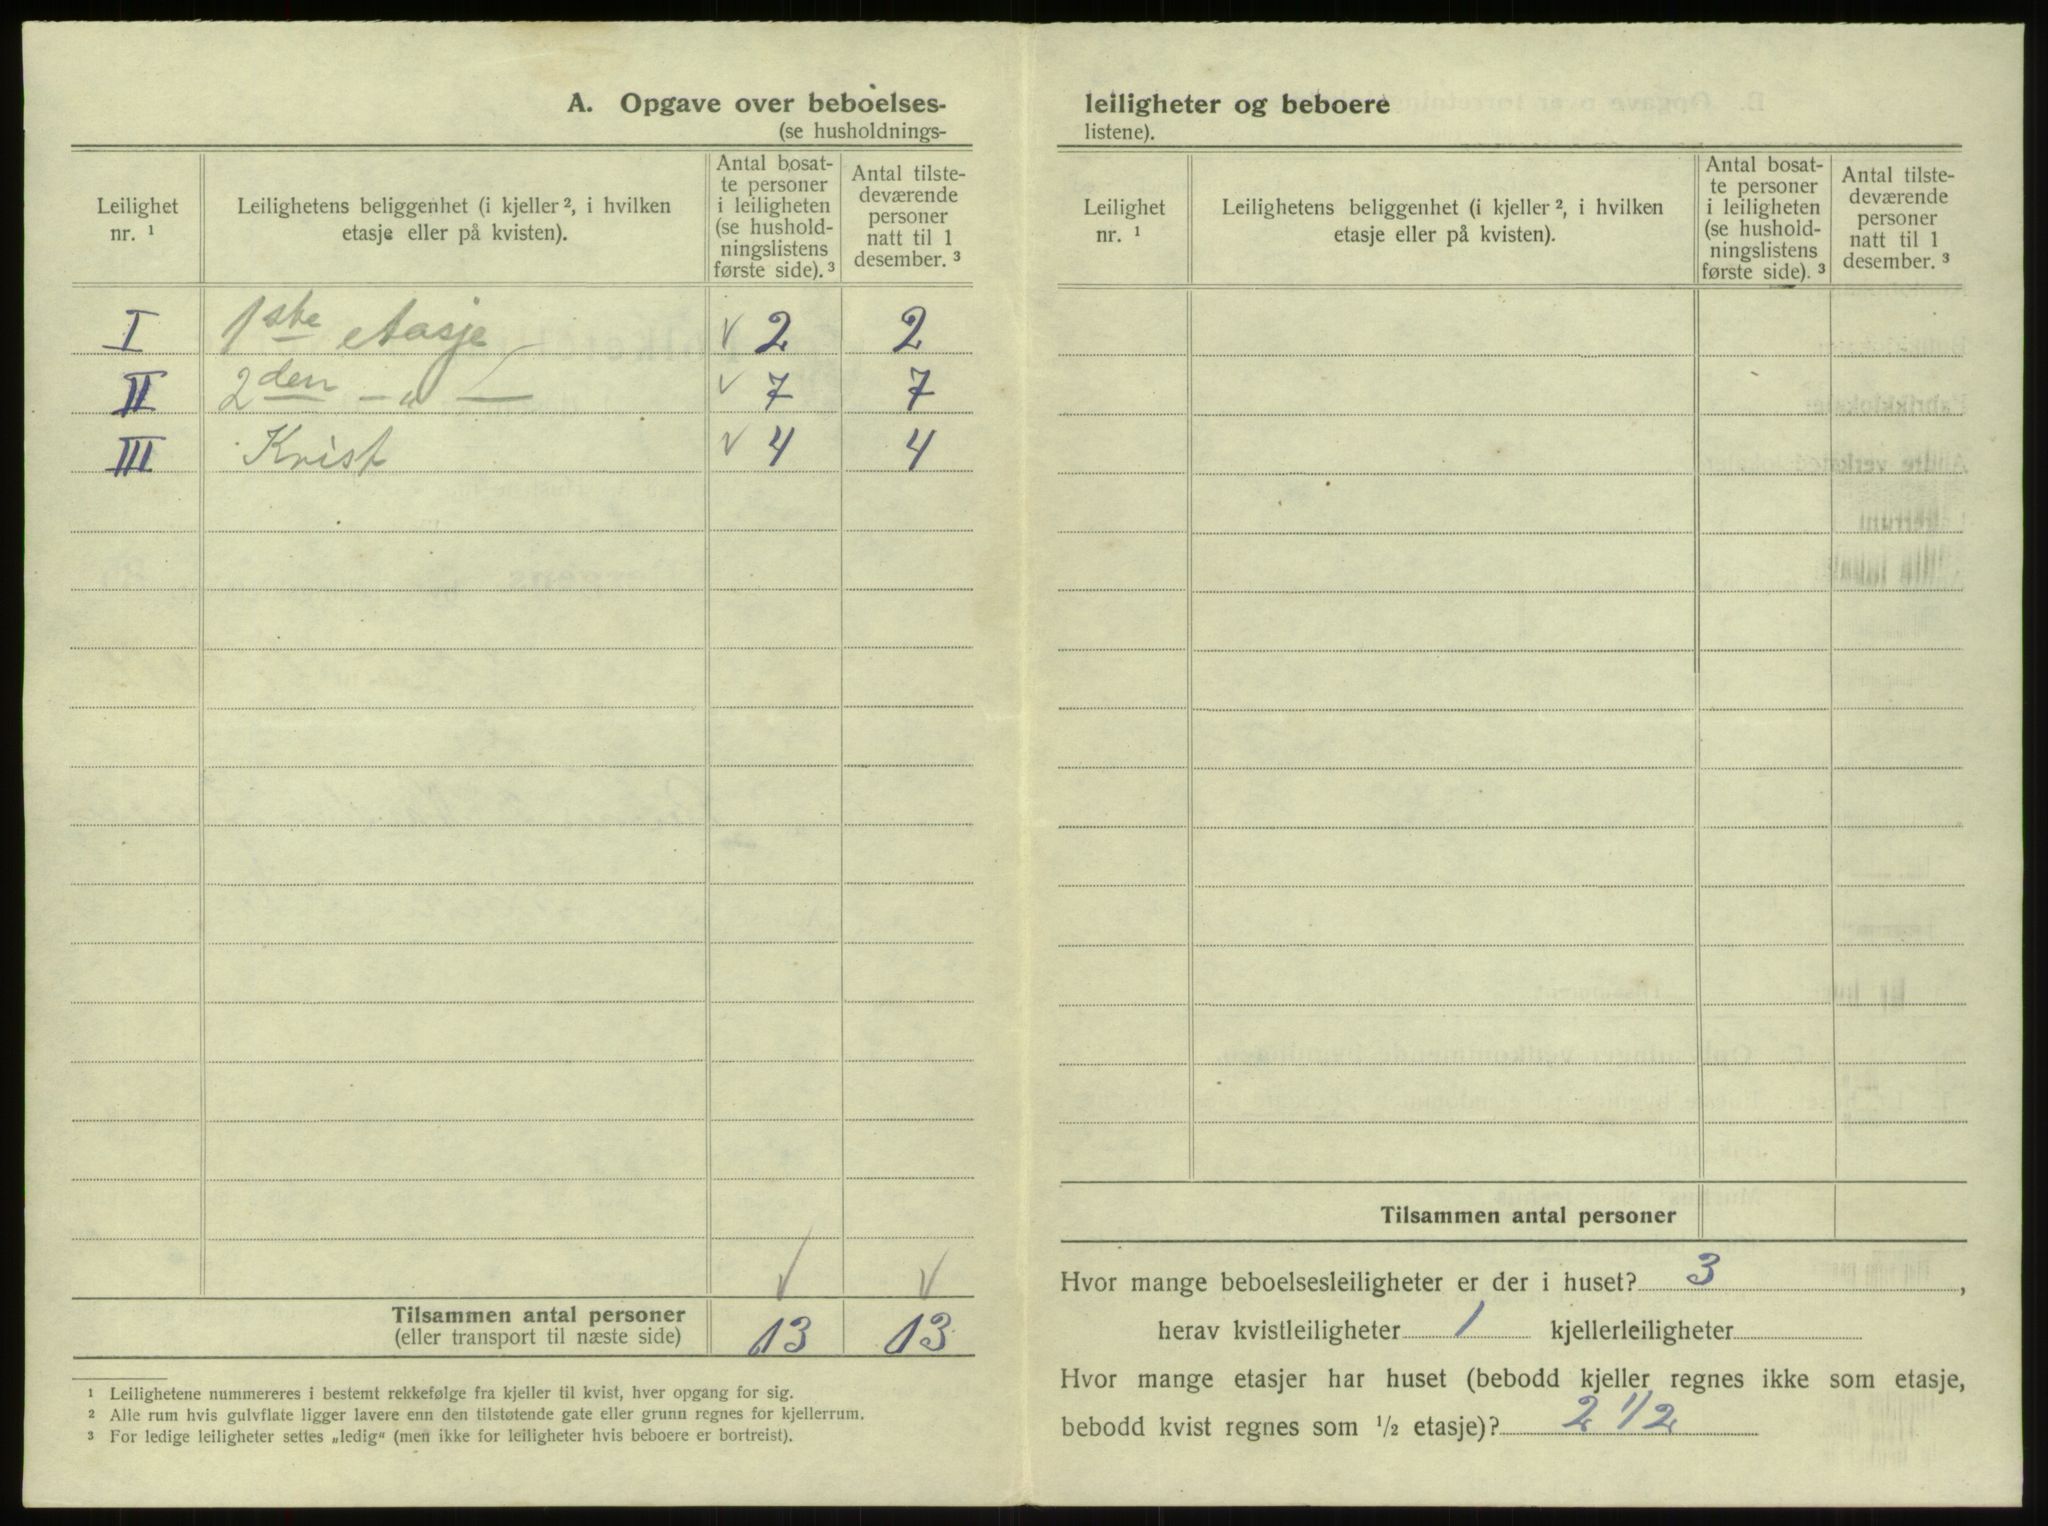 A. Opgave over beboelses-
(se husholdnings-
Leilighet nr. ¹
Leilighetens beliggenhet (i kjeller ², i hvilken etasje eller på kvisten).
Antal bosat-
te personer
i leiligheten
(se hushold-
ningslistens
første side). ³
Antal tilste-
deværende
personer
natt til 1
desember. ³
I 1ste etasje 2 2
II 2den — „ — 7 7
III Kvist 4 4
Tilsammen antal personer 13 13
(eller transport til næste side)
¹ Leilighetene nummereres i bestemt rekkefølge fra kjeller til kvist, hver opgang for sig.
² Alle rum hvis gulvflate ligger lavere enn den tilstøtende gate eller grunn regnes for kjellerrum.
³ For ledige leiligheter settes „ledig“ (men ikke for leiligheter hvis beboere er bortreist).
leiligheter og beboere
listene).
Leilighet nr. ¹
Leilighetens beliggenhet (i kjeller ², i hvilken etasje eller på kvisten).
Antal bosat-
te personer
i leiligheten
(se hushold-
ningslistens
første side). ³
Antal tilste-
deværende
personer
natt til 1
desember. ³
Tilsammen antal personer
Hvor mange beboelsesleiligheter er der i huset? 3 ,
herav kvistleiligheter 1 kjellerleiligheter
Hvor mange etasjer har huset (bebodd kjeller regnes ikke som etasje,
bebodd kvist regnes som ½ etasje)? 2 1/2